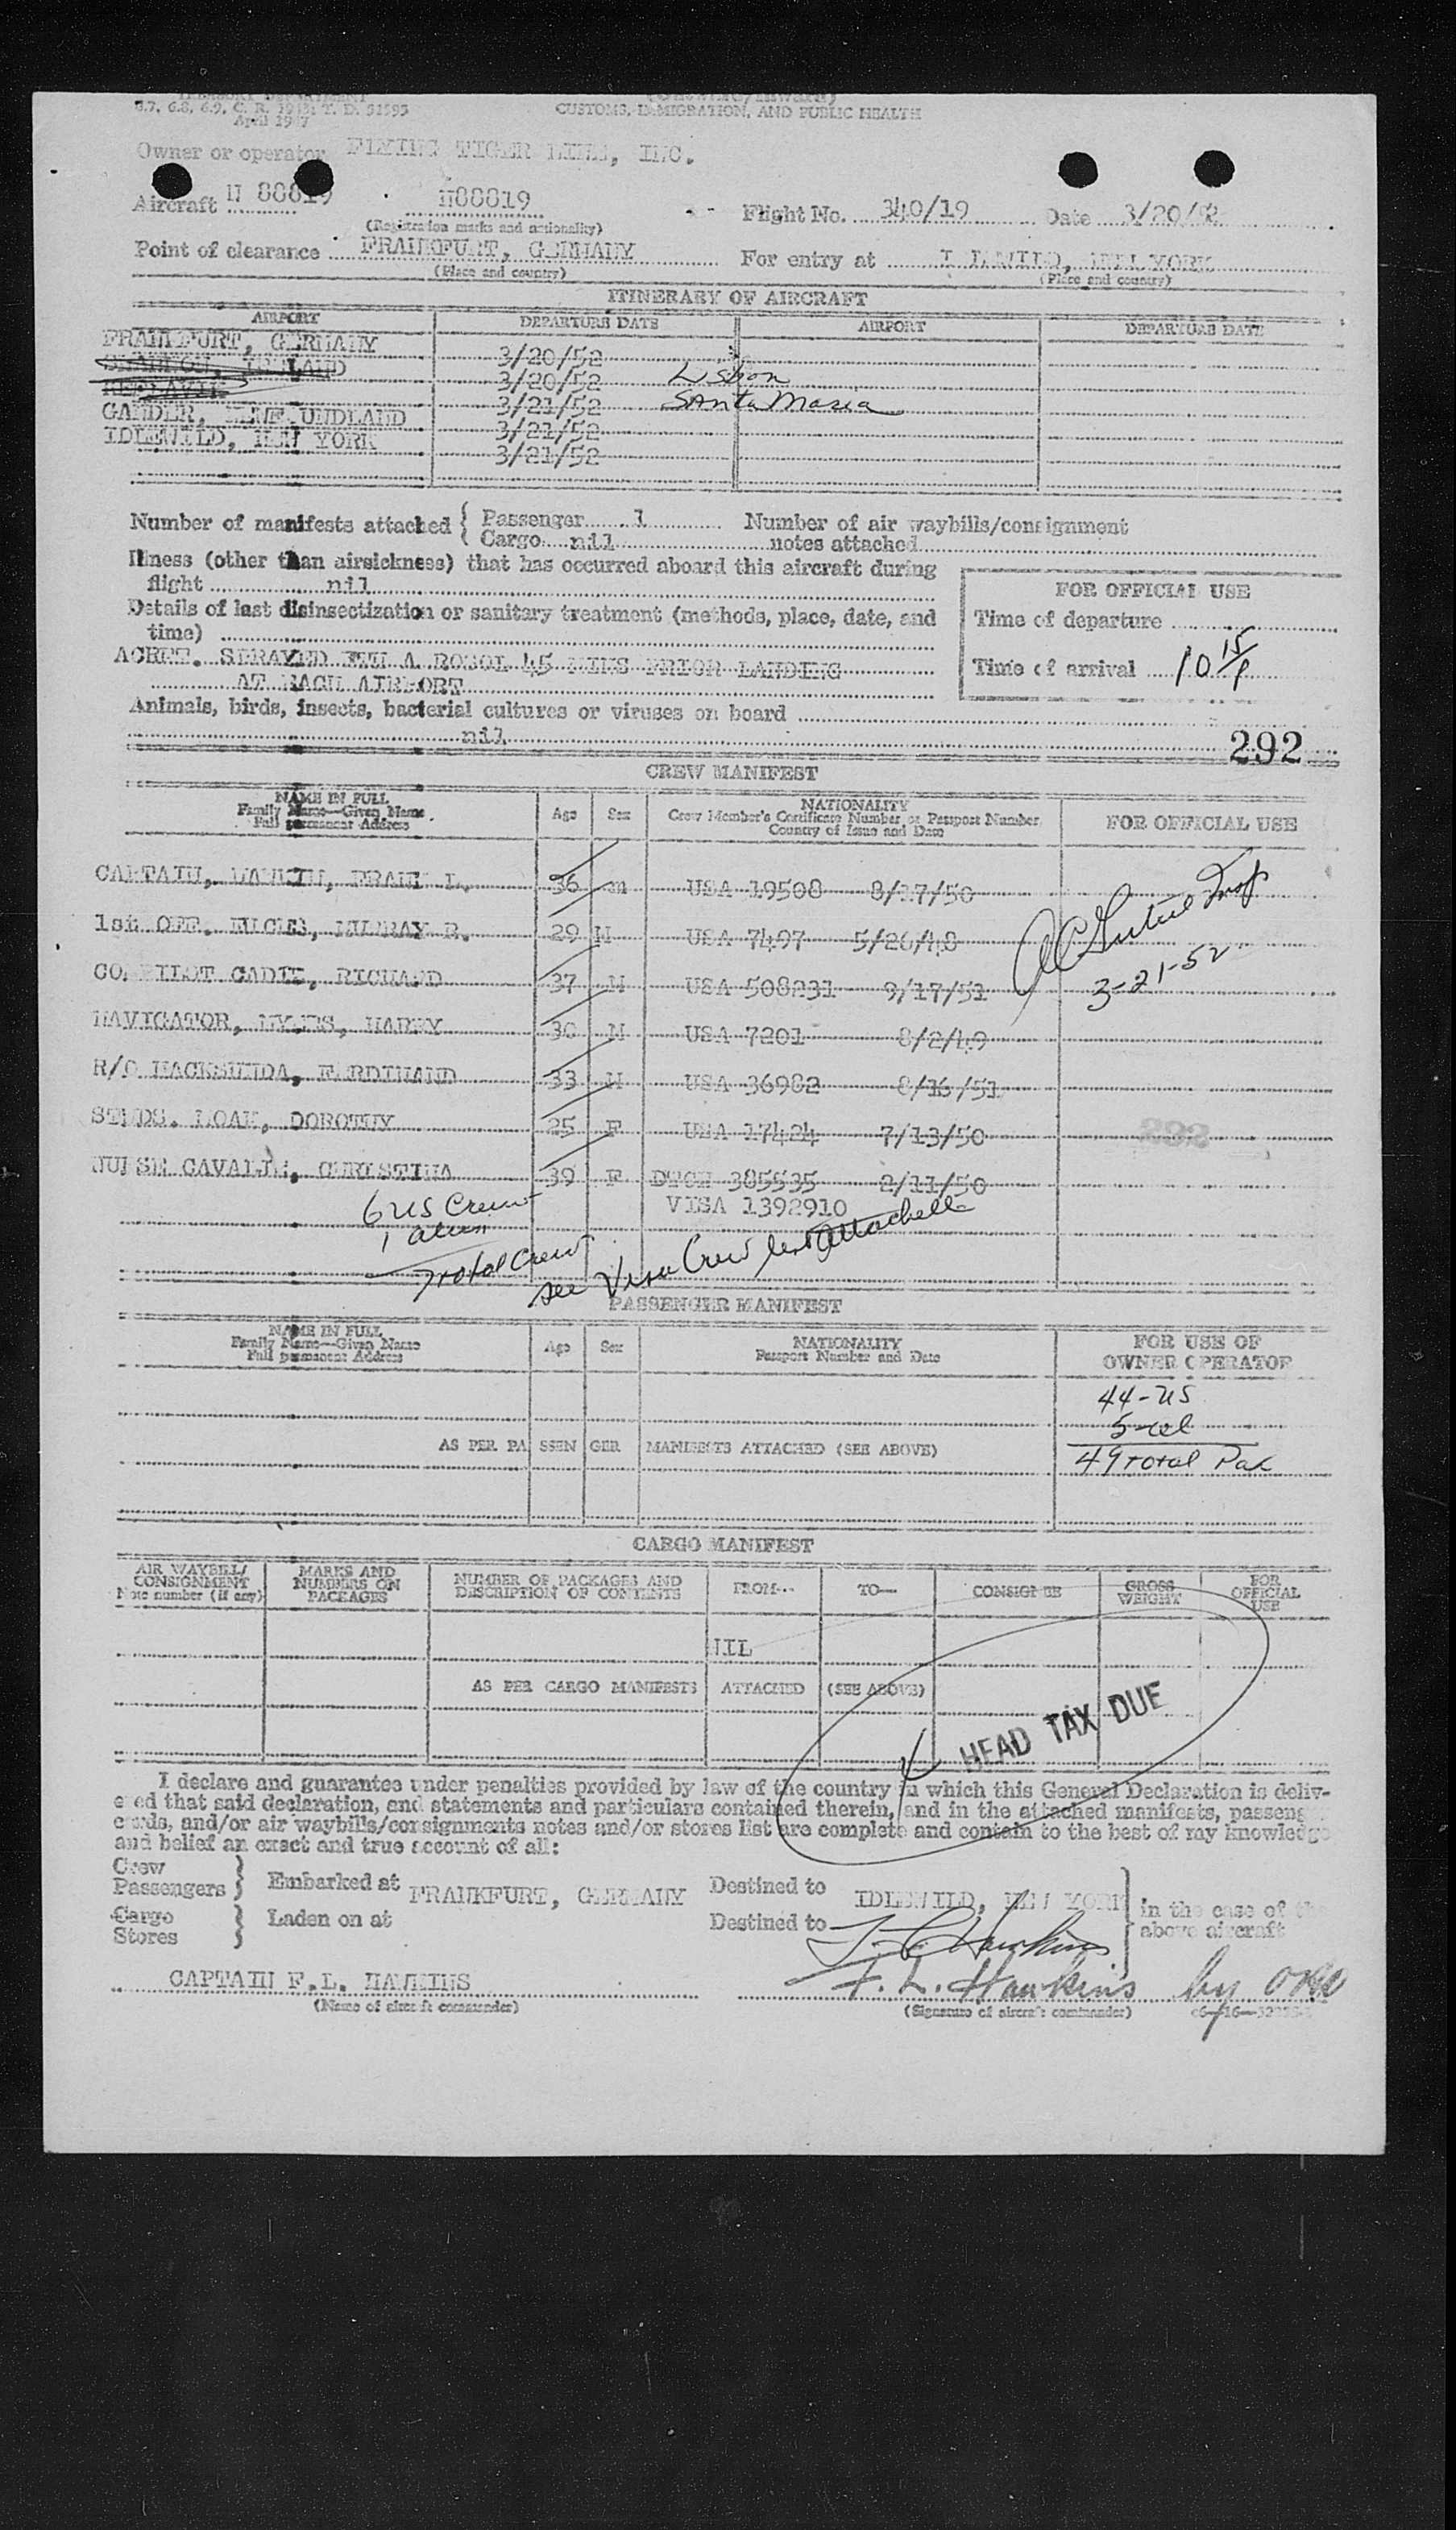 TREASURY DEPARTMENT
CUSTOMS, IMMIGRATION, AND PUBLIC HEALTH
April 1947
Owner or operator FLYING TIGER LINE, INC.
Aircraft N 88819 N88819 Flight No. 340/19 Date 3/20/52
(Registration marks and nationality)
Point of clearance FRANKFURT, GERMANY For entry at IDLEWILD, NEW YORK
(Place and country) (Place and country)
ITINERARY OF AIRCRAFT
AIRPORT DEPARTURE DATE AIRPORT DEPARTURE DATE
FRANKFURT, GERMANY 3/20/52
SHANNON, IRELAND 3/20/52 Lisbon
KEFLAVIK 3/21/52 Santa Maria
GANDER, NEWFOUNDLAND 3/21/52
IDLEWILD, NEW YORK 3/21/52
Number of manifests attached { Passenger 1 Number of air waybills/consignment
Cargo nil notes attached
Illness (other than airsickness) that has occurred aboard this aircraft during
flight nil
FOR OFFICIAL USE
Details of last disinsectization or sanitary treatment (methods, place, date, and
time)
Time of departure
ACRFT. SPRAYED 45 MINS PRIOR LANDING
Time of arrival 10 15/
AT EACH AIRPORT
Animals, birds, insects, bacterial cultures or viruses on board
nil
292
CREW MANIFEST
NAME IN FULL
Family Name—Given Name
Full permanent Address
Age Sex
NATIONALITY
Crew Member's Certificate Number or Passport Number
Country of Issue and Date
FOR OFFICIAL USE
CAPTAIN, HAWKIN, FRANK L. 36 m USA 19508 8/17/50
1st OFF. MURRAY R. 29 M USA 7497 5/26/48
COPILOT CADIE, RICHARD 37 M USA 508231 9/17/51
3-21-52
NAVIGATOR, HARRY 30 M USA 7201 8/2/49
R/O FERDINAND 33 M USA 36982 8/16/51
STWDS. LOAK, DOROTHY 25 F USA 17424 7/13/50
292
NURSE CHRISTINA 39 F DTCH 385535 2/11/50
6 US Crew VISA 1392910
1 alien
7 total Crew see Visa Crew list attached
PASSENGER MANIFEST
NAME IN FULL
Family Name—Given Name
Full permanent Address
Age Sex
NATIONALITY
Passport Number and Date
FOR USE OF
OWNER OPERATOR
44-US
5-
AS PER PASSENGER MANIFESTS ATTACHED (SEE ABOVE)
49 total Pax
CARGO MANIFEST
AIR WAYBILL/
CONSIGNMENT
Note number (if any)
MARKS AND
NUMBERS ON
PACKAGES
NUMBER OF PACKAGES AND
DESCRIPTION OF CONTENTS
FROM— TO— CONSIGNEE
GROSS
WEIGHT
FOR
OFFICIAL
USE
NIL
AS PER CARGO MANIFESTS ATTACHED (SEE ABOVE)
HEAD TAX DUE
I declare and guarantee under penalties provided by law of the country in which this General Declaration is deliv-
ered that said declaration, and statements and particulars contained therein, and in the attached manifests, passenger
cards, and/or air waybills/consignments notes and/or stores list are complete and contain to the best of my knowledge
and belief an exact and true account of all:
Crew
Passengers } Embarked at FRANKFURT, GERMANY Destined to IDLEWILD, NEW YORK
Cargo
Stores } Laden on at Destined to
in the case of the
above aircraft
CAPTAIN F.L. HAWKINS F. L. Hawkins by
(Name of aircraft commander) (Signature of aircraft commander)